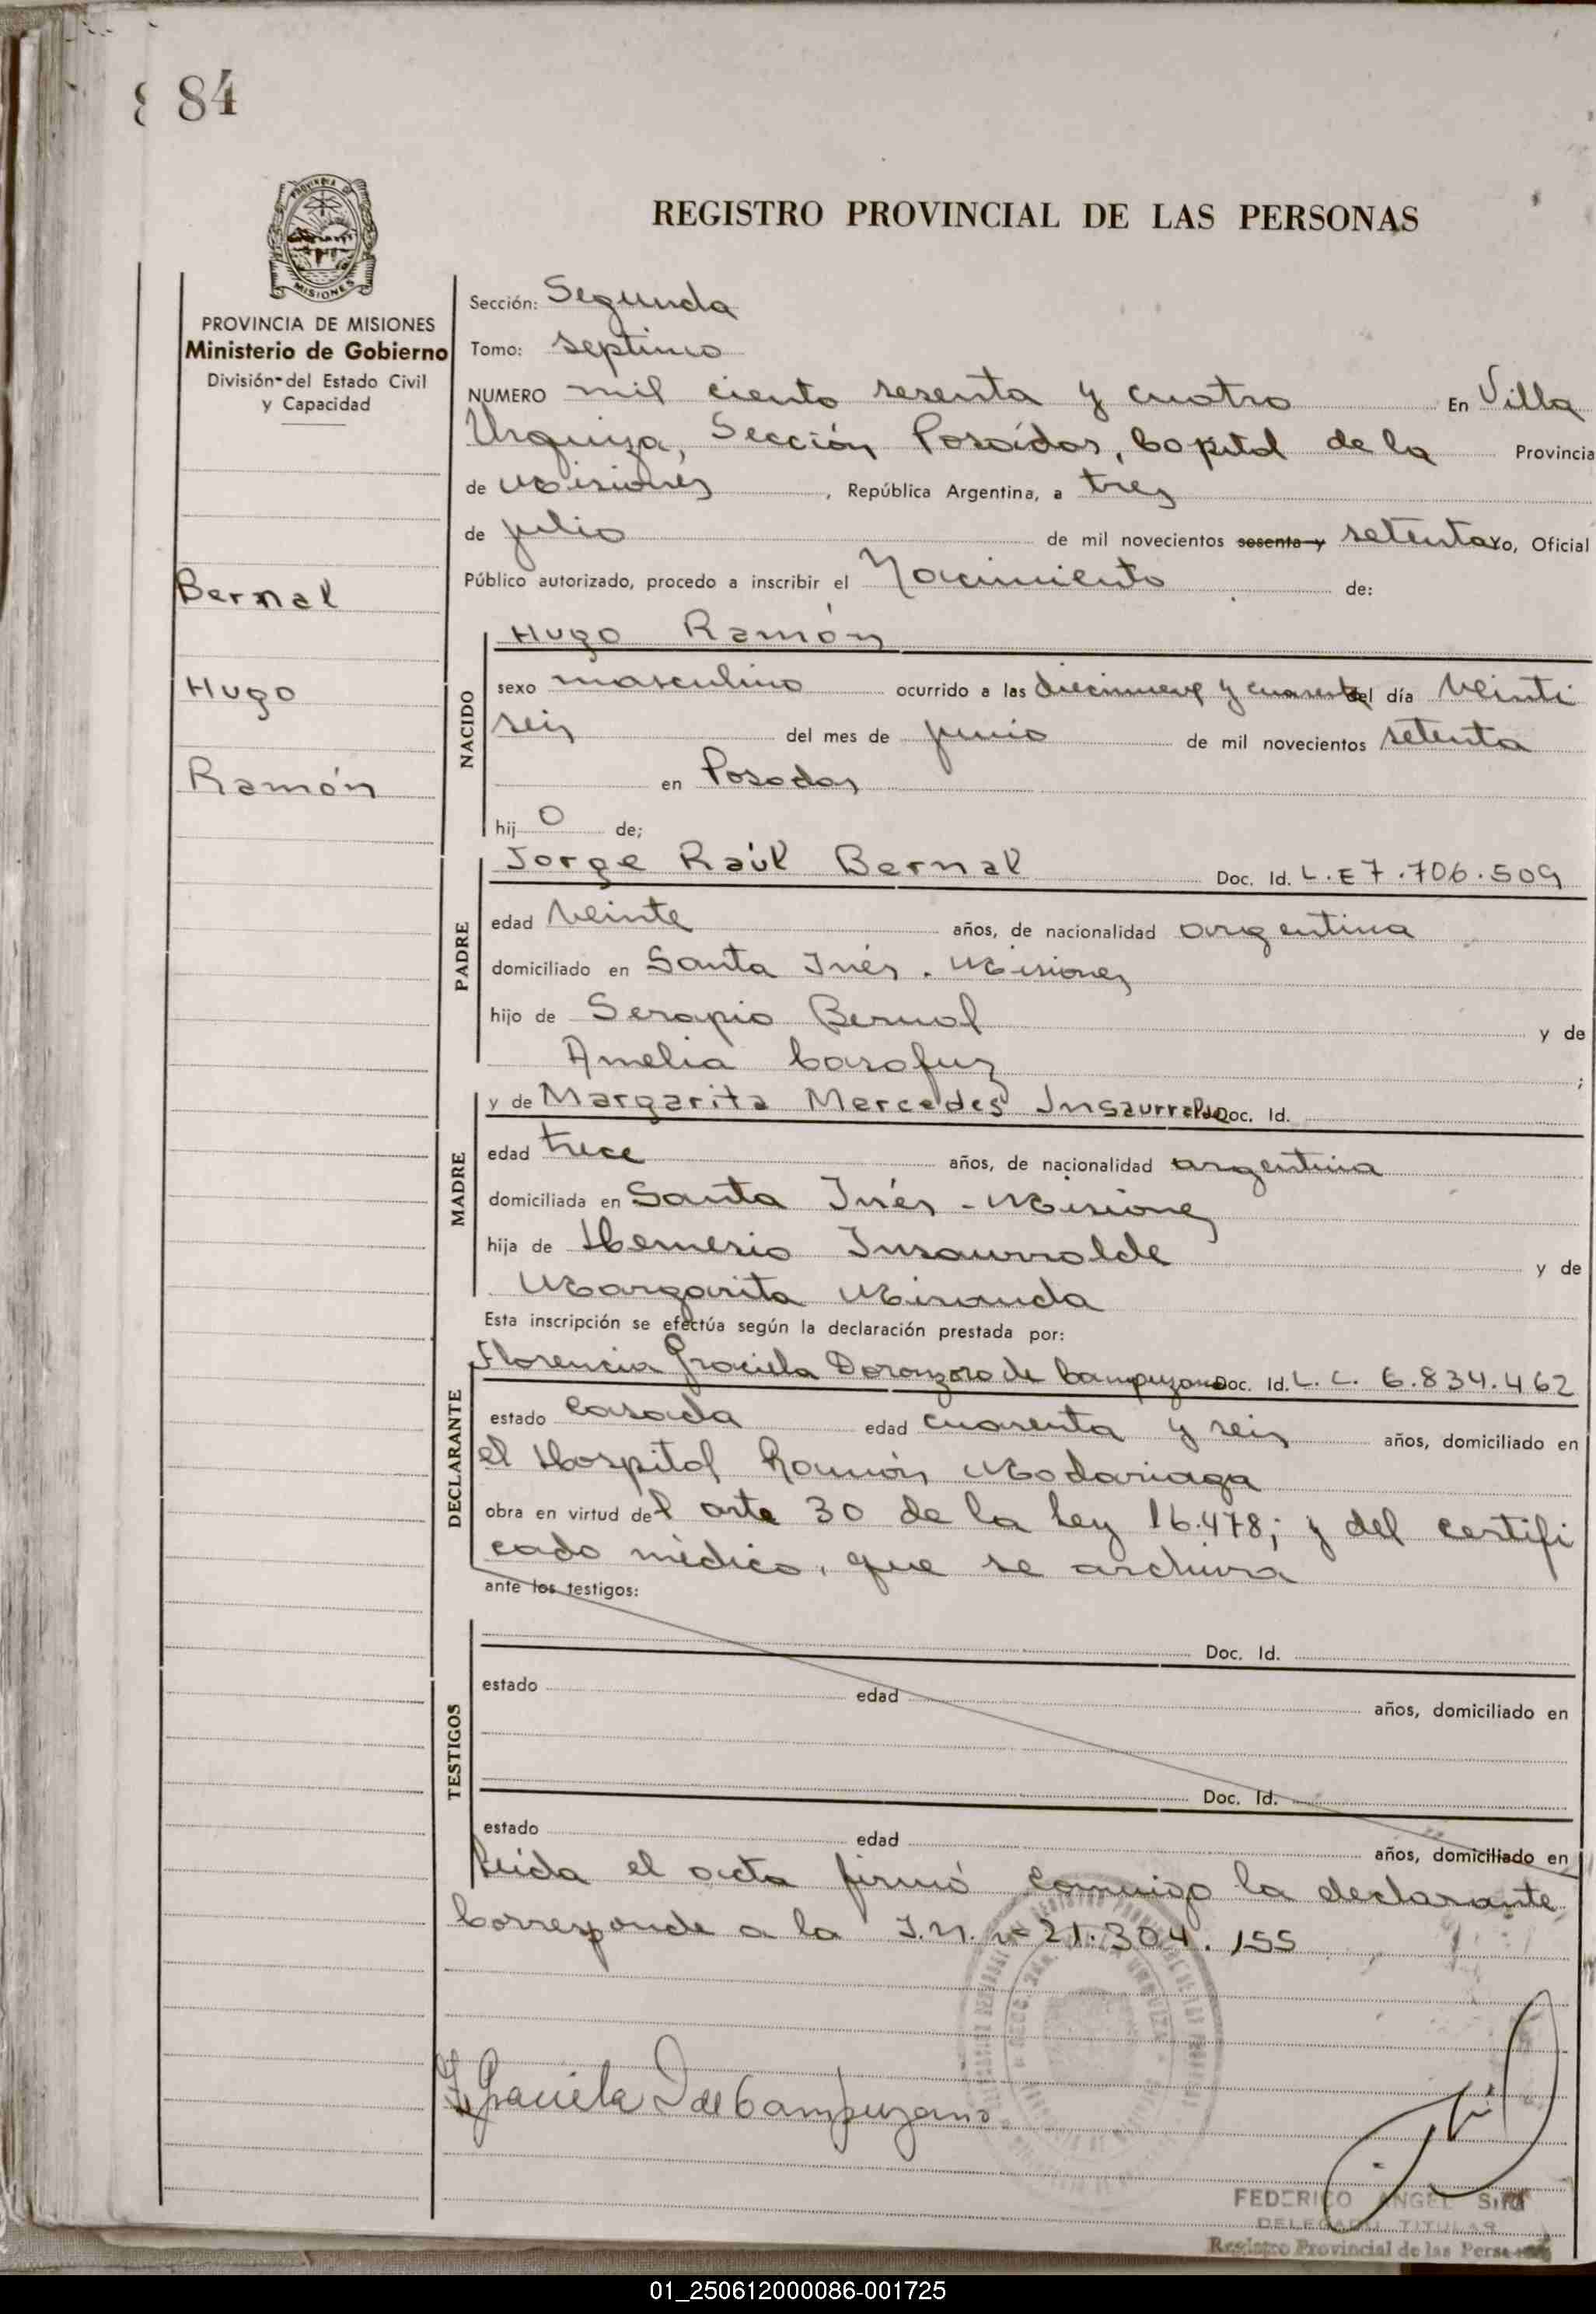 84
REGISTRO PROVINCIAL DE LAS PERSONAS
PROVINCIA DE MISIONES
MISIONES
PROVINCIA DE MISIONES
Ministerio de Gobierno
División del Estado Civil
y Capacidad
Bernal
Hugo
Ramón
Sección: Segunda
Tomo: septimo
NUMERO mil ciento sesenta y cuatro En Villa
Urquiza, Sección Posadas, Capital de la Provincia
de Misiones, República Argentina, a tres
de julio de mil novecientos sesenta y setenta Yo, Oficial
Público autorizado, procedo a inscribir el Nacimiento de:
NACIDO
Hugo Ramón
sexo masculino ocurrido a las diecinueve y cuarenta del día veinti
seis del mes de junio de mil novecientos setenta
en Posadas
hij o de;
PADRE
Jorge Raúl Bernal Doc. Id. L.E 7.706.509
edad veinte años, de nacionalidad argentina
domiciliado en Santa Inés. Misiones
hijo de Serapio Bernal y de
Amelia ;
MADRE
y de Margarita Mercedes Insaurralde Doc. Id.
edad trece años, de nacionalidad argentina
domiciliada en Santa Inés - Misiones
hija de Nemesio Insaurralde y de
Margarita Miranda
Esta inscripción se efectúa según la declaración prestada por:
DECLARANTE
Florencia Graciela Doronzoro de Campuzano Doc. Id. L. C. 6.834.462
estado casada edad cuarenta y seis años, domiciliado en
el Hospital Ramón Madariaga
obra en virtud del arte 30 de la ley 16.478; y del certifi
cado médico, que se archiva
ante los testigos:
TESTIGOS
Doc. Id.
estado edad años, domiciliado en
Doc. Id.
estado edad años, domiciliado en
Leida el acta firmó conmigo la declarante
Corresponde a la I.N. nº 21.304.155
F. Graciela D de Campuzano
FEDERICO ANGEL
DELEGADO TITULAR
Registro Provincial de las Personas
01_250612000086-001725